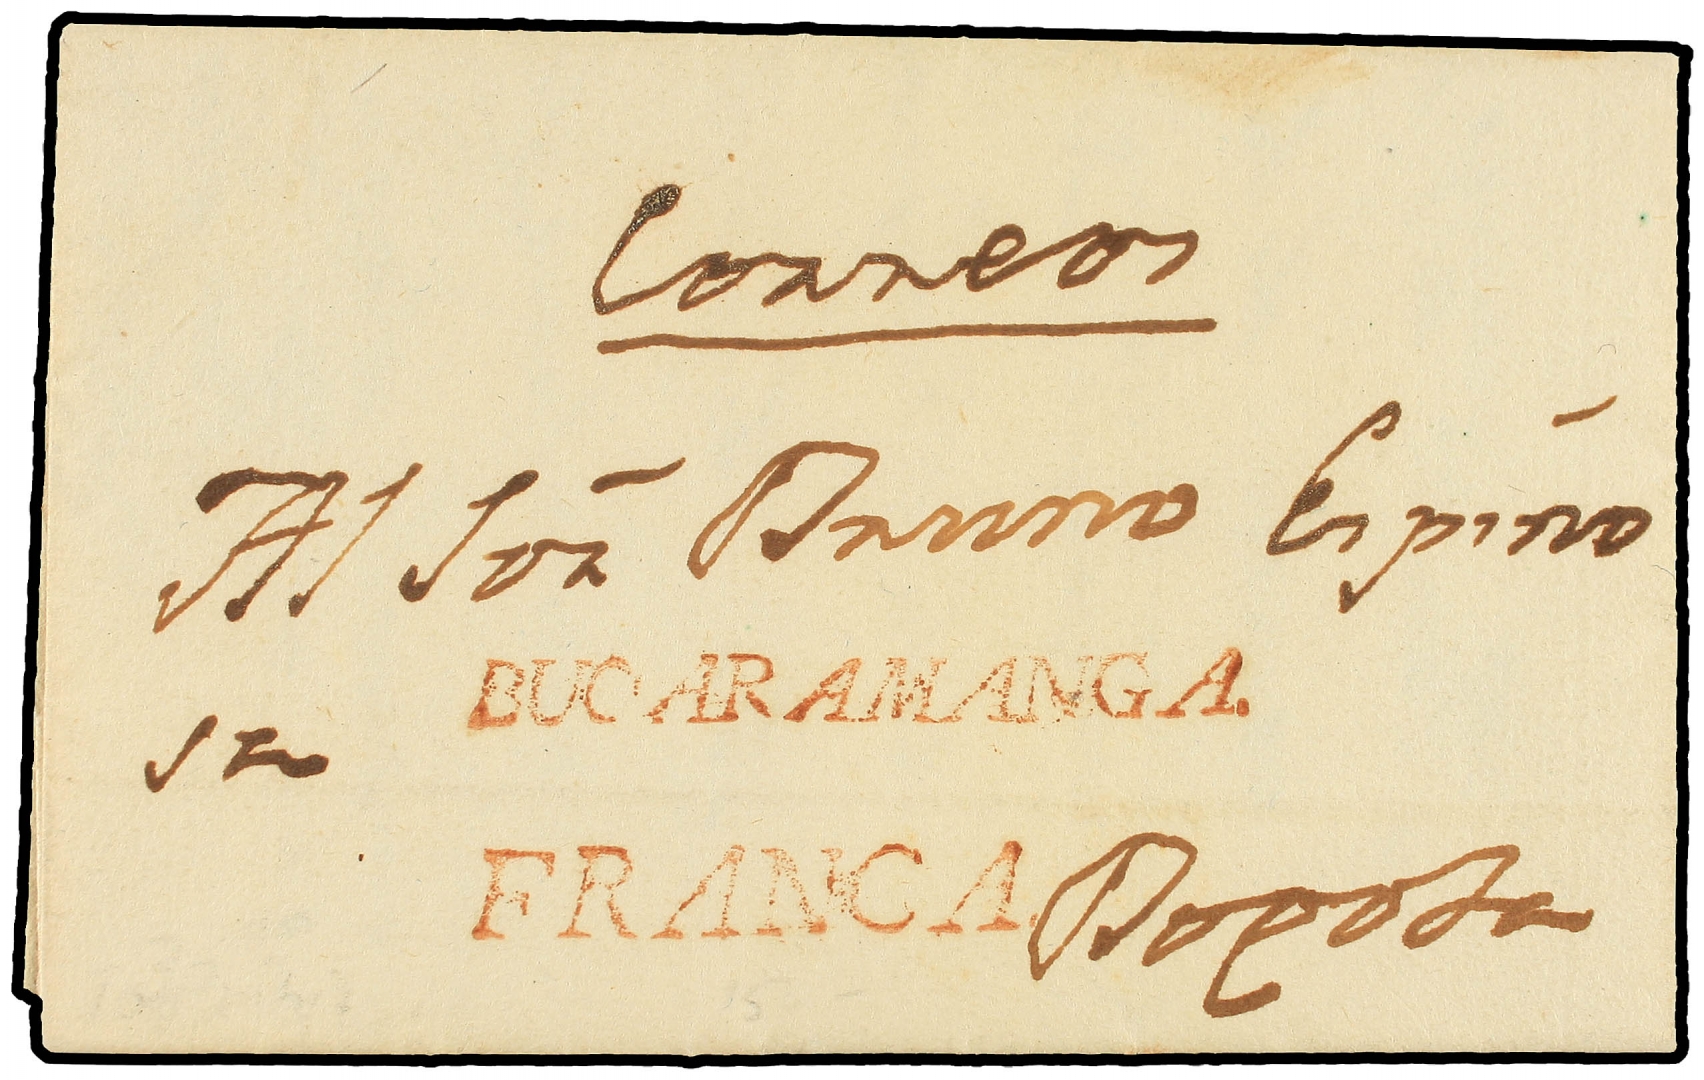 Correos
Al Sor Bruno Espino
BUCARAMANGA.
sa
FRANCA.
Bogota